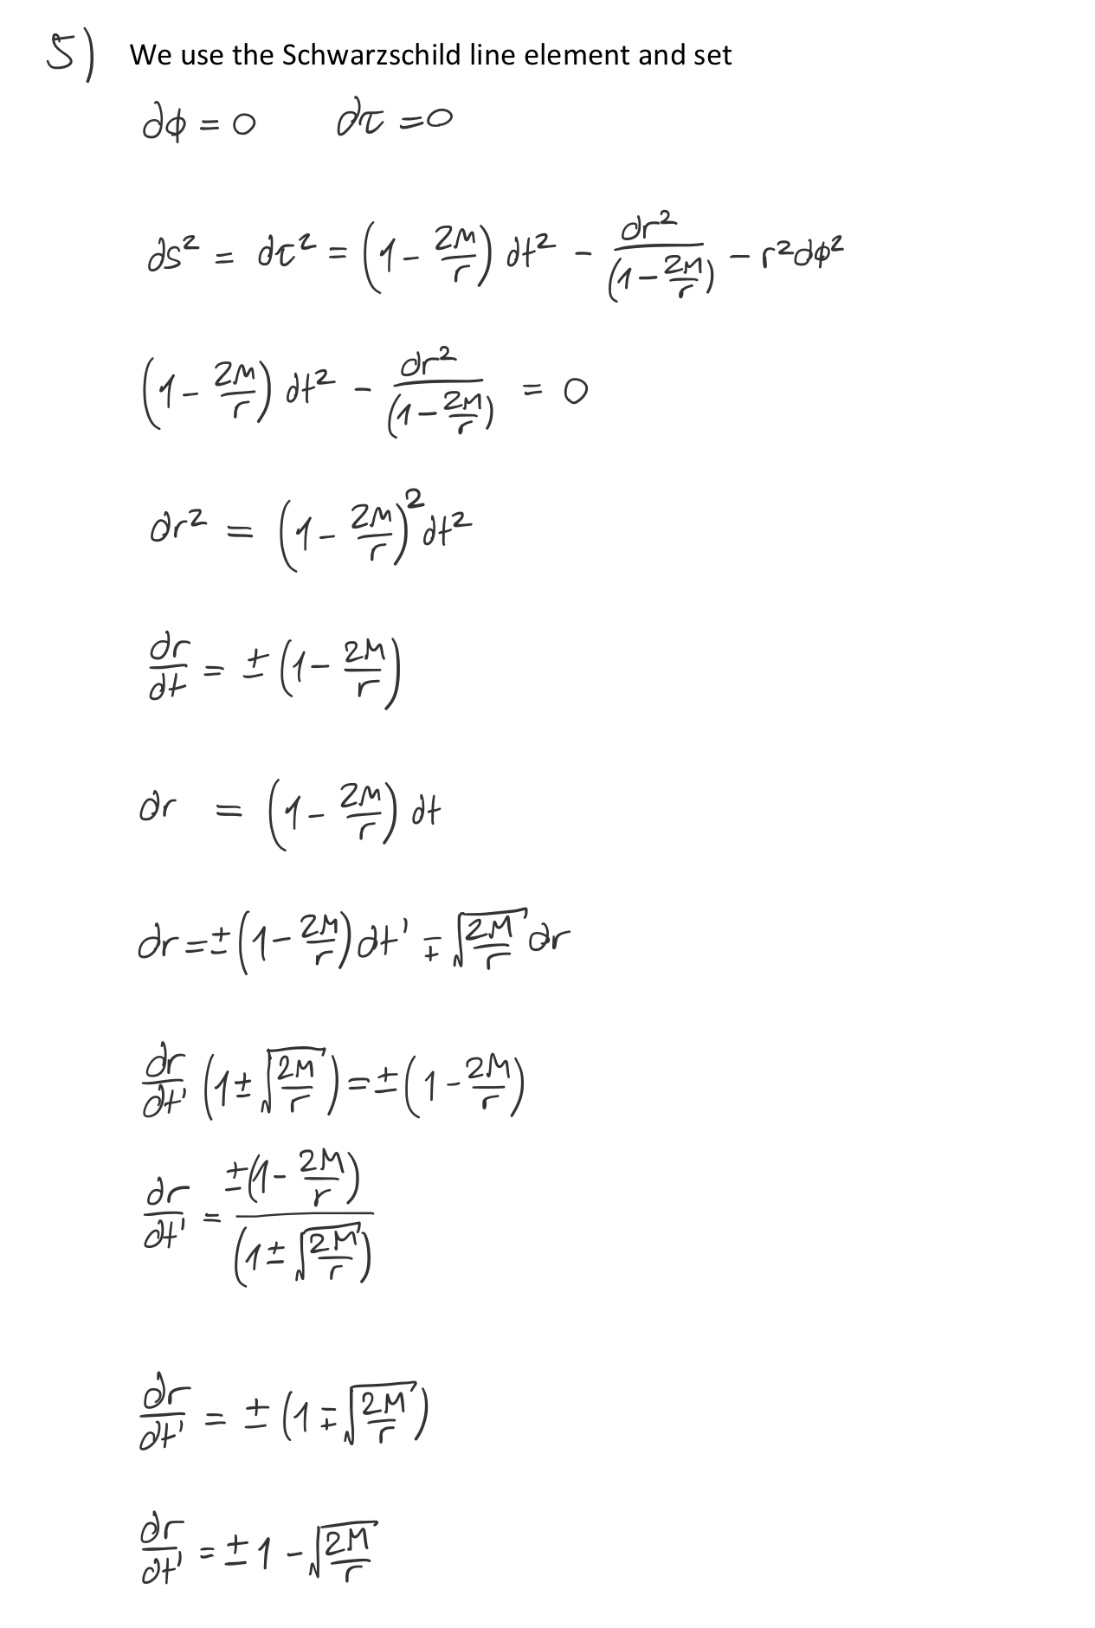 5) We use the Schwarzschild line element and set
dϕ = 0 dτ = 0
ds² = dτ² = (1 - 2M/r) dt² - dr²/(1 - 2M/r) - r²dϕ²
(1 - 2M/r) dt² - dr²/(1 - 2M/r) = 0
dr² = (1 - 2M/r)² dt²
dr/dt = ± (1 - 2M/r)
dr = (1 - 2M/r) dt
dr = ± (1 - 2M/r) dt' ∓ √(2M/r) dr
dr/dt' (1 ± √(2M/r)) = ± (1 - 2M/r)
dr/dt' = ±(1 - 2M/r)/(1 ± √(2M/r))
dr/dt' = ± (1 ∓ √(2M/r))
dr/dt' = ± 1 - √(2M/r)